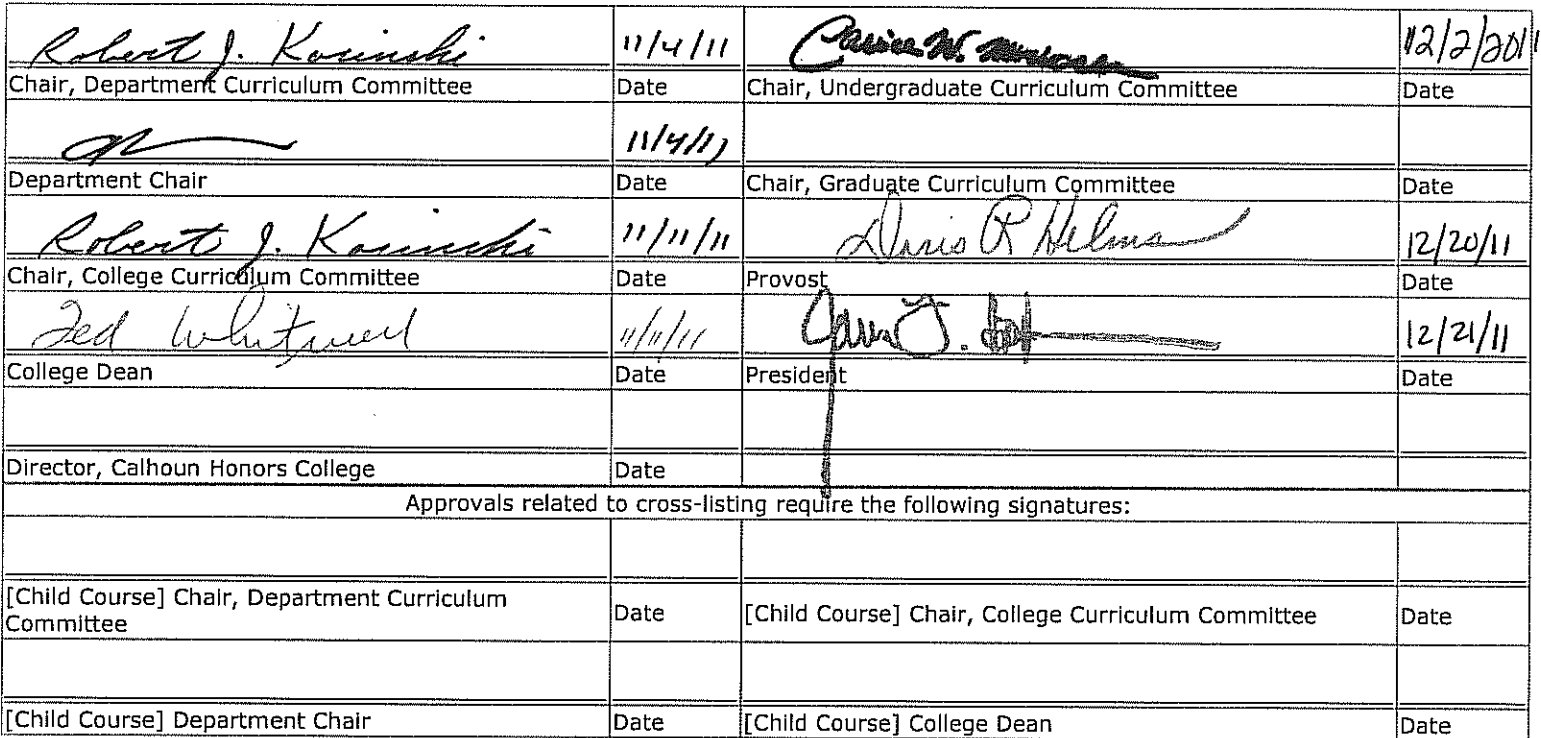 Robert J. Kosinski 11/4/11 12/2/2011
Chair, Department Curriculum Committee Date Chair, Undergraduate Curriculum Committee Date
11/4/11
Department Chair Date Chair, Graduate Curriculum Committee Date
Robert J. Kosinski 11/11/11 Doris R Helms 12/20/11
Chair, College Curriculum Committee Date Provost Date
Ted Whitwell 11/11/11 12/21/11
College Dean Date President Date
Director, Calhoun Honors College Date
Approvals related to cross-listing require the following signatures:
[Child Course] Chair, Department Curriculum
Committee Date [Child Course] Chair, College Curriculum Committee Date
[Child Course] Department Chair Date [Child Course] College Dean Date